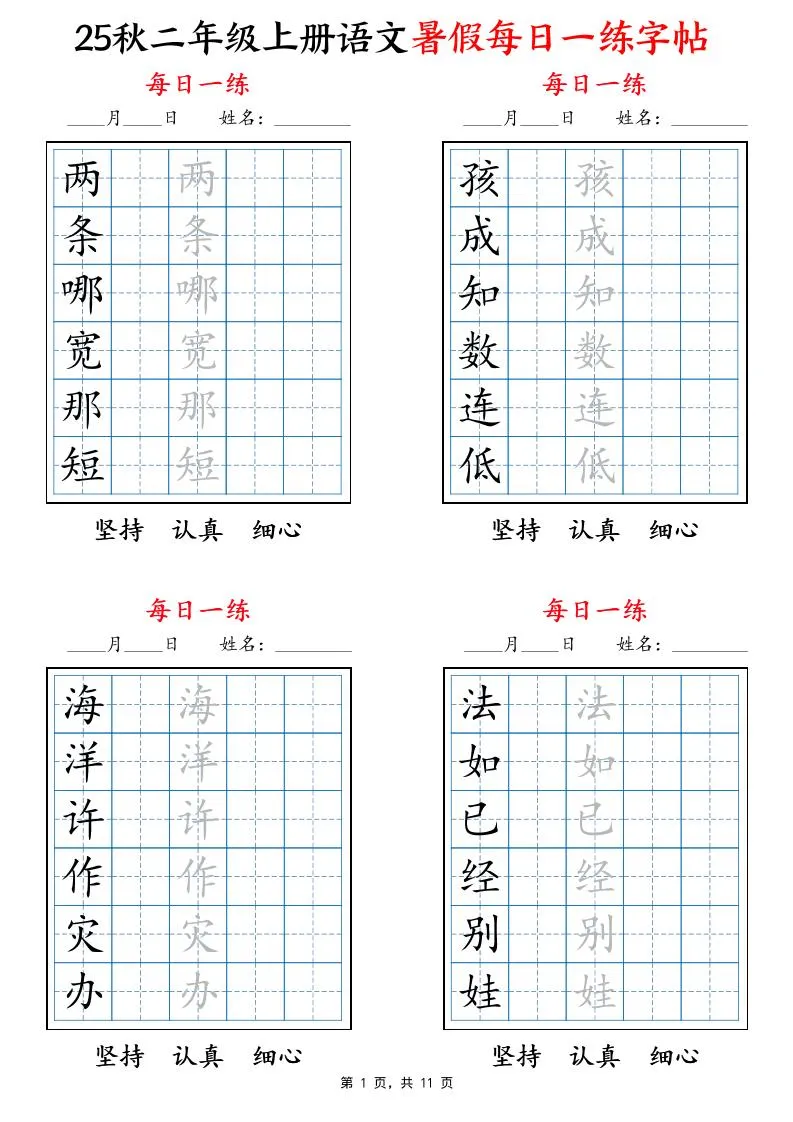 25秋二年级上册语文暑假每日一练字帖
每日一练
____月____日 姓名：________
两 两
条 条
哪 哪
宽 宽
那 那
短 短
坚持 认真 细心
每日一练
____月____日 姓名：________
孩 孩
成 成
知 知
数 数
连 连
低 低
坚持 认真 细心
每日一练
____月____日 姓名：________
海 海
洋 洋
许 许
作 作
灾 灾
办 办
坚持 认真 细心
每日一练
____月____日 姓名：________
法 法
如 如
已 已
经 经
别 别
娃 娃
坚持 认真 细心
第 1 页，共 11 页